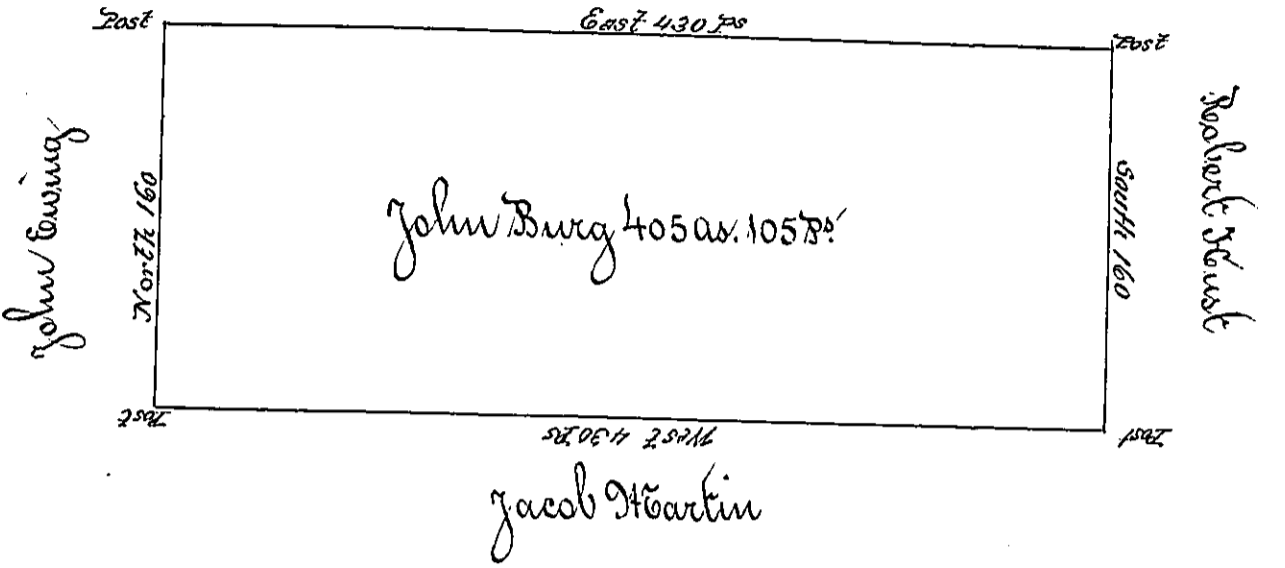 Post East 430 Ps Post
John Ewing
North 160
John Burg 405 as. 105 Ps.
South 160
Robert Hust
Post West 430 Ps Post
Jacob Martin